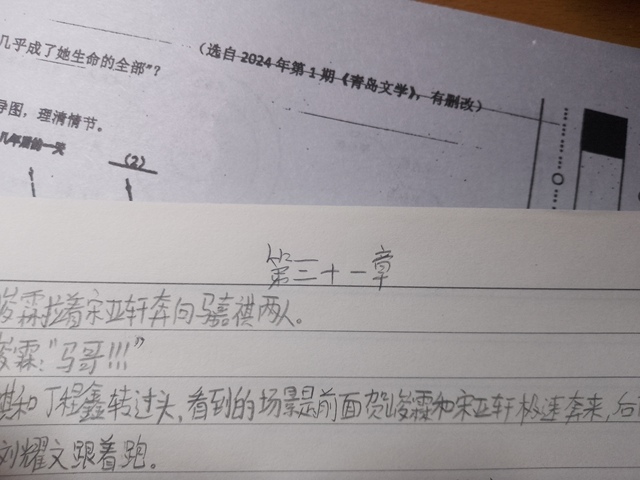 几乎成了她生命的全部"?
(选自 2024 年第 1 期《青岛文学》，有删改)
导图，理清情节。
几年后的一天
(2)
第三十一章
峻霖拉着宋亚轩奔向马嘉祺两人。
峻霖:"马哥!!!"
祺和丁程鑫转过头,看到的场景是前面贺峻霖和宋亚轩极速奔来,后
刘耀文跟着跑。